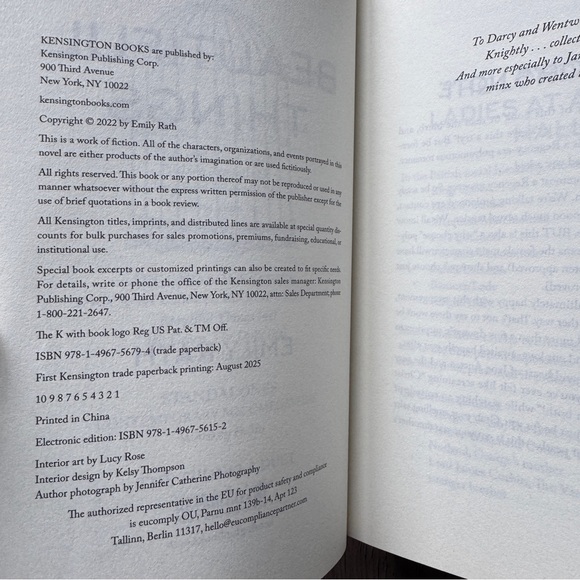 KENSINGTON BOOKS are published by:
Kensington Publishing Corp.
900 Third Avenue
New York, NY 10022
kensingtonbooks.com
Copyright © 2022 by Emily Rath
This is a work of fiction. All of the characters, organizations, and events portrayed in this
novel are either products of the author's imagination or are used fictitiously.
All rights reserved. This book or any portion thereof may not be reproduced or used in any
manner whatsoever without the express written permission of the publisher except for the
use of brief quotations in a book review.
All Kensington titles, imprints, and distributed lines are available at special quantity dis-
counts for bulk purchases for sales promotions, premiums, fundraising, educational, or
institutional use.
Special book excerpts or customized printings can also be created to fit specific needs.
For details, write or phone the office of the Kensington sales manager: Kensington
Publishing Corp., 900 Third Avenue, New York, NY 10022, attn: Sales Department; phone
1-800-221-2647.
The K with book logo Reg US Pat. & TM Off.
ISBN 978-1-4967-5679-4 (trade paperback)
First Kensington trade paperback printing: August 2025
10 9 8 7 6 5 4 3 2 1
Printed in China
Electronic edition: ISBN 978-1-4967-5615-2
Interior art by Lucy Rose
Interior design by Kelsy Thompson
Author photograph by Jennifer Catherine Photography
The authorized representative in the EU for product safety and compliance
is eucomply OU, Parnu mnt 139b-14, Apt 123
Tallinn, Berlin 11317, hello@eucompliancepartner.com
To Darcy and Wentw
Knightly . . . collect
And more especially to Jan
minx who created